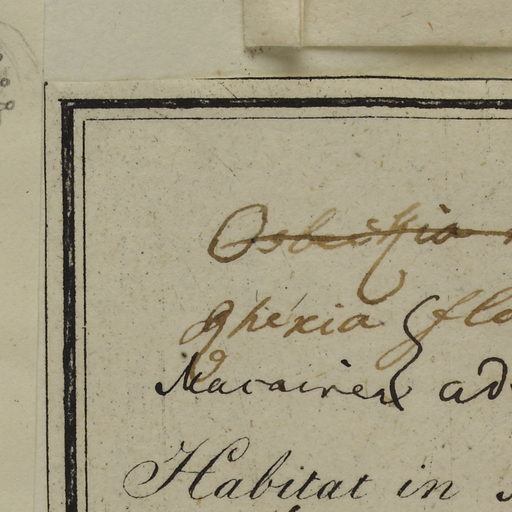 Osbeckia
Rhexia flo
Macairea ad
Habitat in